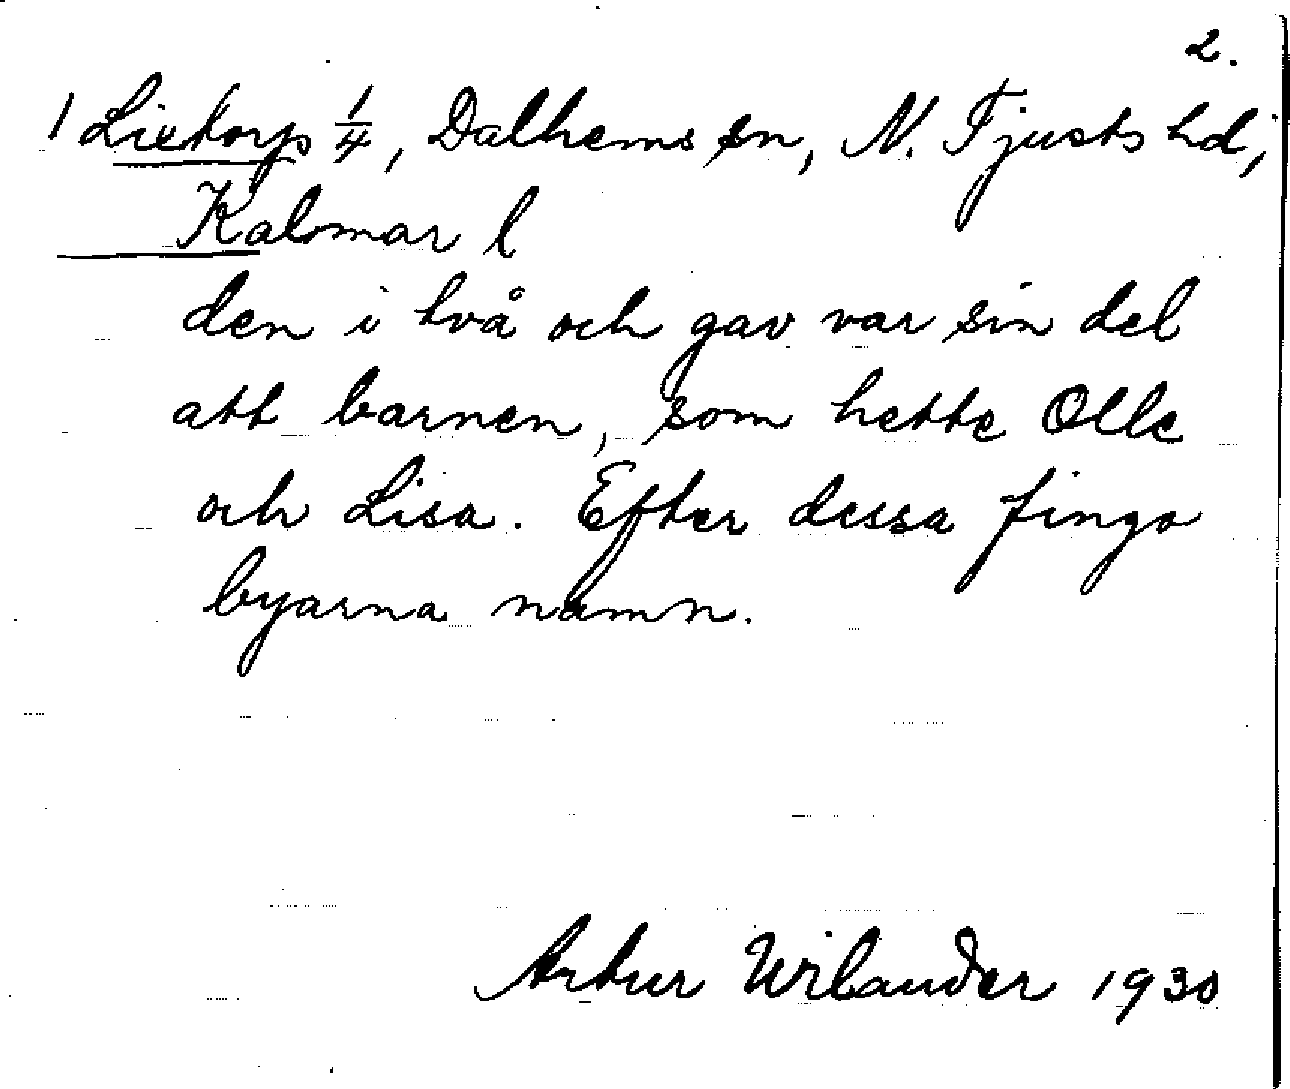 2.
1 Lietorp 1/4, Dalhems sn, N. Tjusts hd,
Kalmar l
den i två och gav var sin del
att barnen, som hette Olle
och Lisa. Efter dessa fingo
byarna namn.
Artur Wilander 1930